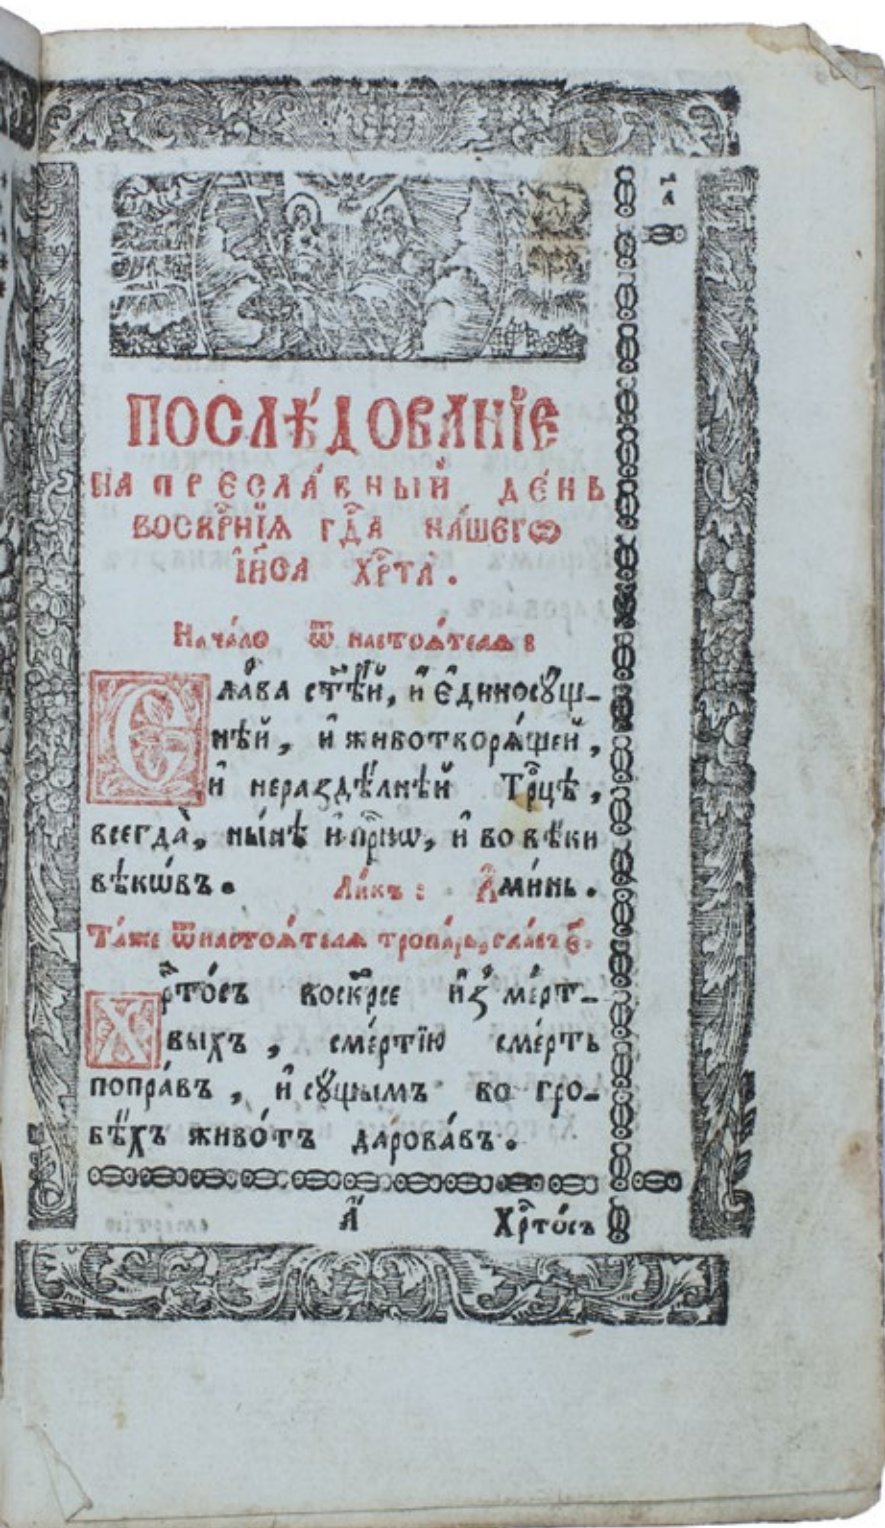 а҃
ПОСЛѢ́ДОВАНІЕ
НА ПРЕСЛА́ВНЫЙ ДЕ́НЬ
ВОСКР҃НІѦ ГДⷭ҇А НА́ШЕГѠ
І҆И҃СА ХРⷭ҇ТА .
Нача́ло ѿ настоѧ́телѧ в
Сла́ва ст҃ѣ́й, и҆ Є҆диносꙋ́щ-
нѣй, и҆ животворѧ́щей,
и҆ нераздѣ́лнѣй Трⷪ҇цѣ,
всегда̀, ны́нѣ и҆ при́сн҃ѡ, и҆ во вѣ́ки
вѣкѡ́въ. Ли́къ: А҆ми́нь.
Та́же ѿ настоѧ́телѧ тропа́рь, гла́съ є҃:
Хрⷭ҇то́съ воскр҃се и҆з̾ ме́рт-
выхъ, сме́ртїю сме́рть
попра́въ, и҆ сꙋ́щымъ во гро-
бѣ́хъ живо́тъ дарова́въ.
а҃ Хрⷭ҇то́съ